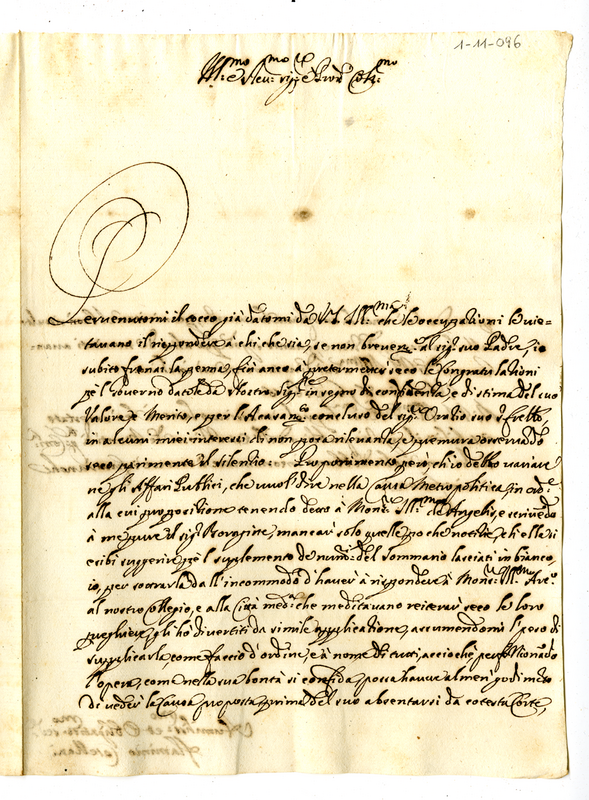 1-11-096
Ill:mo e Reu:mo sig:r e Pron Col:mo
Pervenutomi il cocco già datomi da V.S. Ill:ma che le occupationi le vie=
tavano il rispondere à chi che sia, se non brevem:te al sig: suo Padre, io
subito frenai la penna, fin anco à pretermetter seco le Congratulationi
pe'l Governo datole da Nostro Sig:re in segno di confidenza, e di stima del suo
Valore, e Merito, e per l' concluso del sig:r Oratio suo fratello
in alcuni miei interessi di non poca rilevanza, e premura osservando
seco parimente il silentio. Proponimento però, ch'io debbo variare
ne gli Affari Publici, che vuol dire nella Causa Metropolitica, in
alla cui propositione tenendo Monsig:r Ill:mo de Angelis, e scrivendo
à me pure il sig:r Borogine, mancar solo quelle poche notitie, ch'ella si
esibì suggerire pe'l suplemento de del Sommario lasciati in bianco,
io, per sottrarla dall'incommodo d'haver à rispondere à Mons:r Ill:mo Arc:o
al nostro Collegio, e alla Città med:ma che meditavano reiterar seco le loro
preghiere, gli hò divertiti da simile applicatione, assumendomi il peso di
supplicarla come faccio d'ordine, e à nome di tutti, acciochè perfettionando
l'opera, come nella sua bontà si confida, possa haver almen godimento
di veder la Causa proposta prima del suo absentarsi da cotesta Corte,